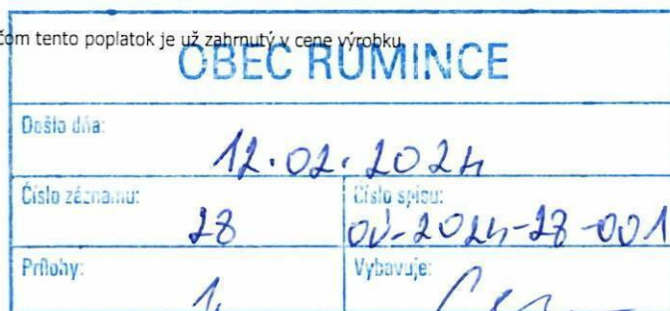 čom tento poplatok je už zahrnutý v cene výrobku
OBEC RUMINCE
Došlo dňa:
12.02.2024
Číslo záznamu:
28
Číslo spisu:
OÚ-2024-28-001
Prílohy:
1
Vybavuje: